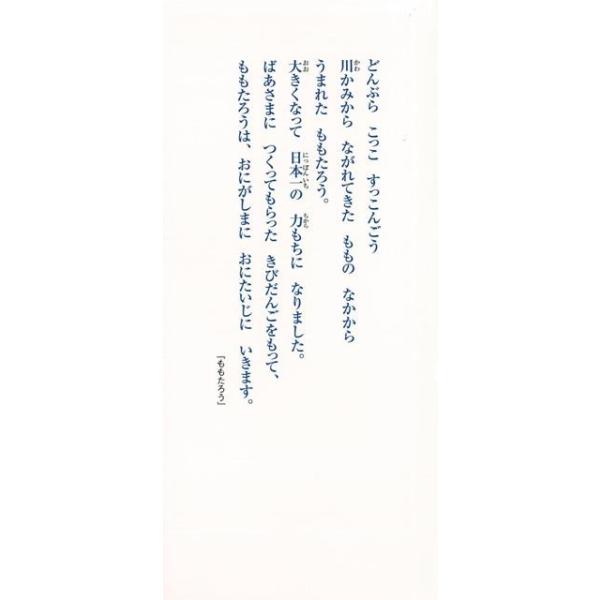 どんぶら　こっこ　すっこんごう
川かみから　ながれてきた　ももの　なかから
うまれた　ももたろう。
大きくなって　日本一の　力もちに　なりました。
ばあさまに　つくってもらった　きびだんごをもって、
ももたろうは、おにがしまに　おにたいじに　いきます。
「ももたろう」